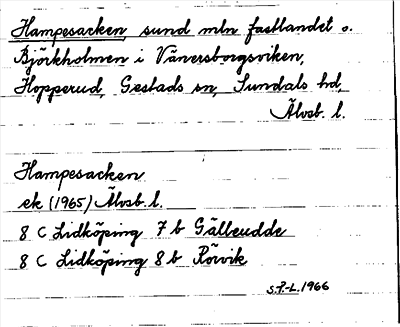 Hampesacken, sund mln fastlandet o.
Björkholmen i Vänersborgsviken,
Hopperud, Gestads sn, Sundals hd,
Älvsb. l.
Hampesacken
ek (1965) Älvsb. l.
8 C Lidköping 7 b Gälleudde
8 C Lidköping 8 b Rörvik
S.P-L. 1966